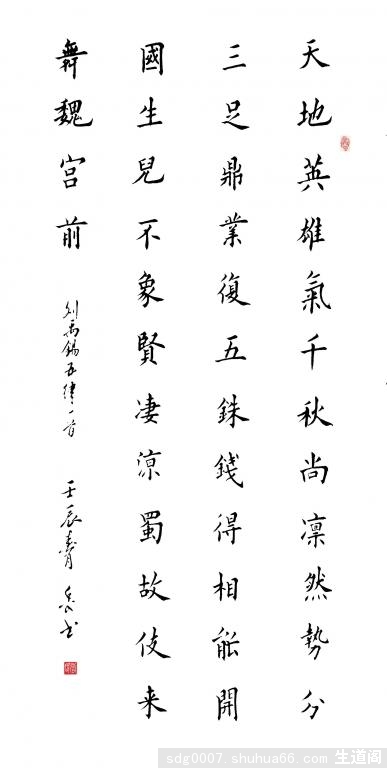 天地英雄氣千秋尚凛然勢分
三足鼎業復五銖錢得相能開
國生兒不象賢凄涼蜀故伎来
舞魏宫前
刘禹錫五律一首
壬辰春月 书
sdg0007.shuhua66.com 生道阁